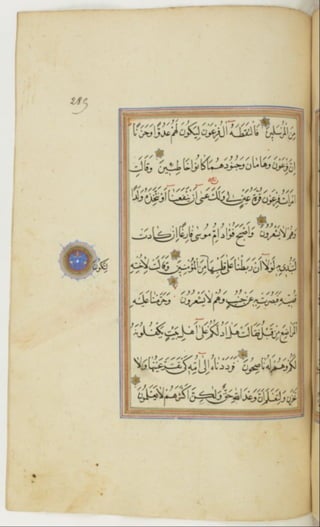 من المرسلين فالتقطه ال فرعون ليكون لهم عدوا وحزنا
ان فرعون وهامان وجنودهما كانوا خاطئين وقالت
امرات فرعون قرة عين لي ولك عسى ان ينفعنا او نتخذه ولدا
وهم لا يشعرون واصبح فؤاد ام موسى فارغا ان كادت
لتبدي به لولا ان ربطنا على قلبها من المؤمنين وقالت لاخته
لتكون
قصيه فبصرت به عن جنب وهم لا يشعرون وحرمنا عليه
المراضع من قبل فقالت هل ادلكم على اهل بيت يكفلونه
لكم وهم له ناصحون فرددناه الى امه كي تقر عينها ولا
تحزن ولتعلم ان وعد الله حق ولكن اكثرهم لا يعلمون